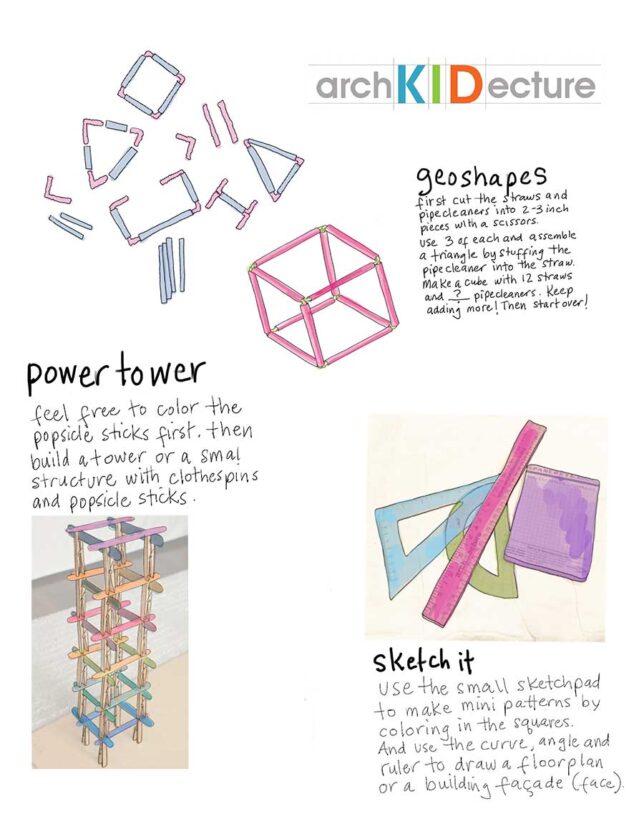 archKIDecture
geoshapes
first cut the straws and
pipecleaners into 2-3 inch
pieces with a scissors.
use 3 of each and assemble
a triangle by stuffing the
pipecleaner into the straw.
Make a cube with 12 straws
and ? pipecleaners. Keep
adding more! Then start over!
power tower
feel free to color the
popsicle sticks first. then
build a tower or a smal
structure with clothespins
and popsicle sticks.
sketch it
use the small sketchpad
to make mini patterns by
coloring in the squares.
And use the curve, angle and
ruler to draw a floorplan
or a building façade (face).